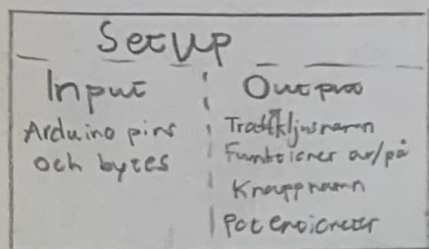 SetUp
Input
Output
Arduino pins
och bytes
Trafikljusnamn
Funktioner av/på
Knappnamn
Potentiometer